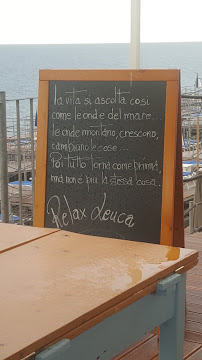 la vita si ascolta così
come le onde del mare...
le onde montano, crescono,
cambiano le cose...
Poi tutto torna come prima,
ma non è più la stessa cosa.
Relax Leuca